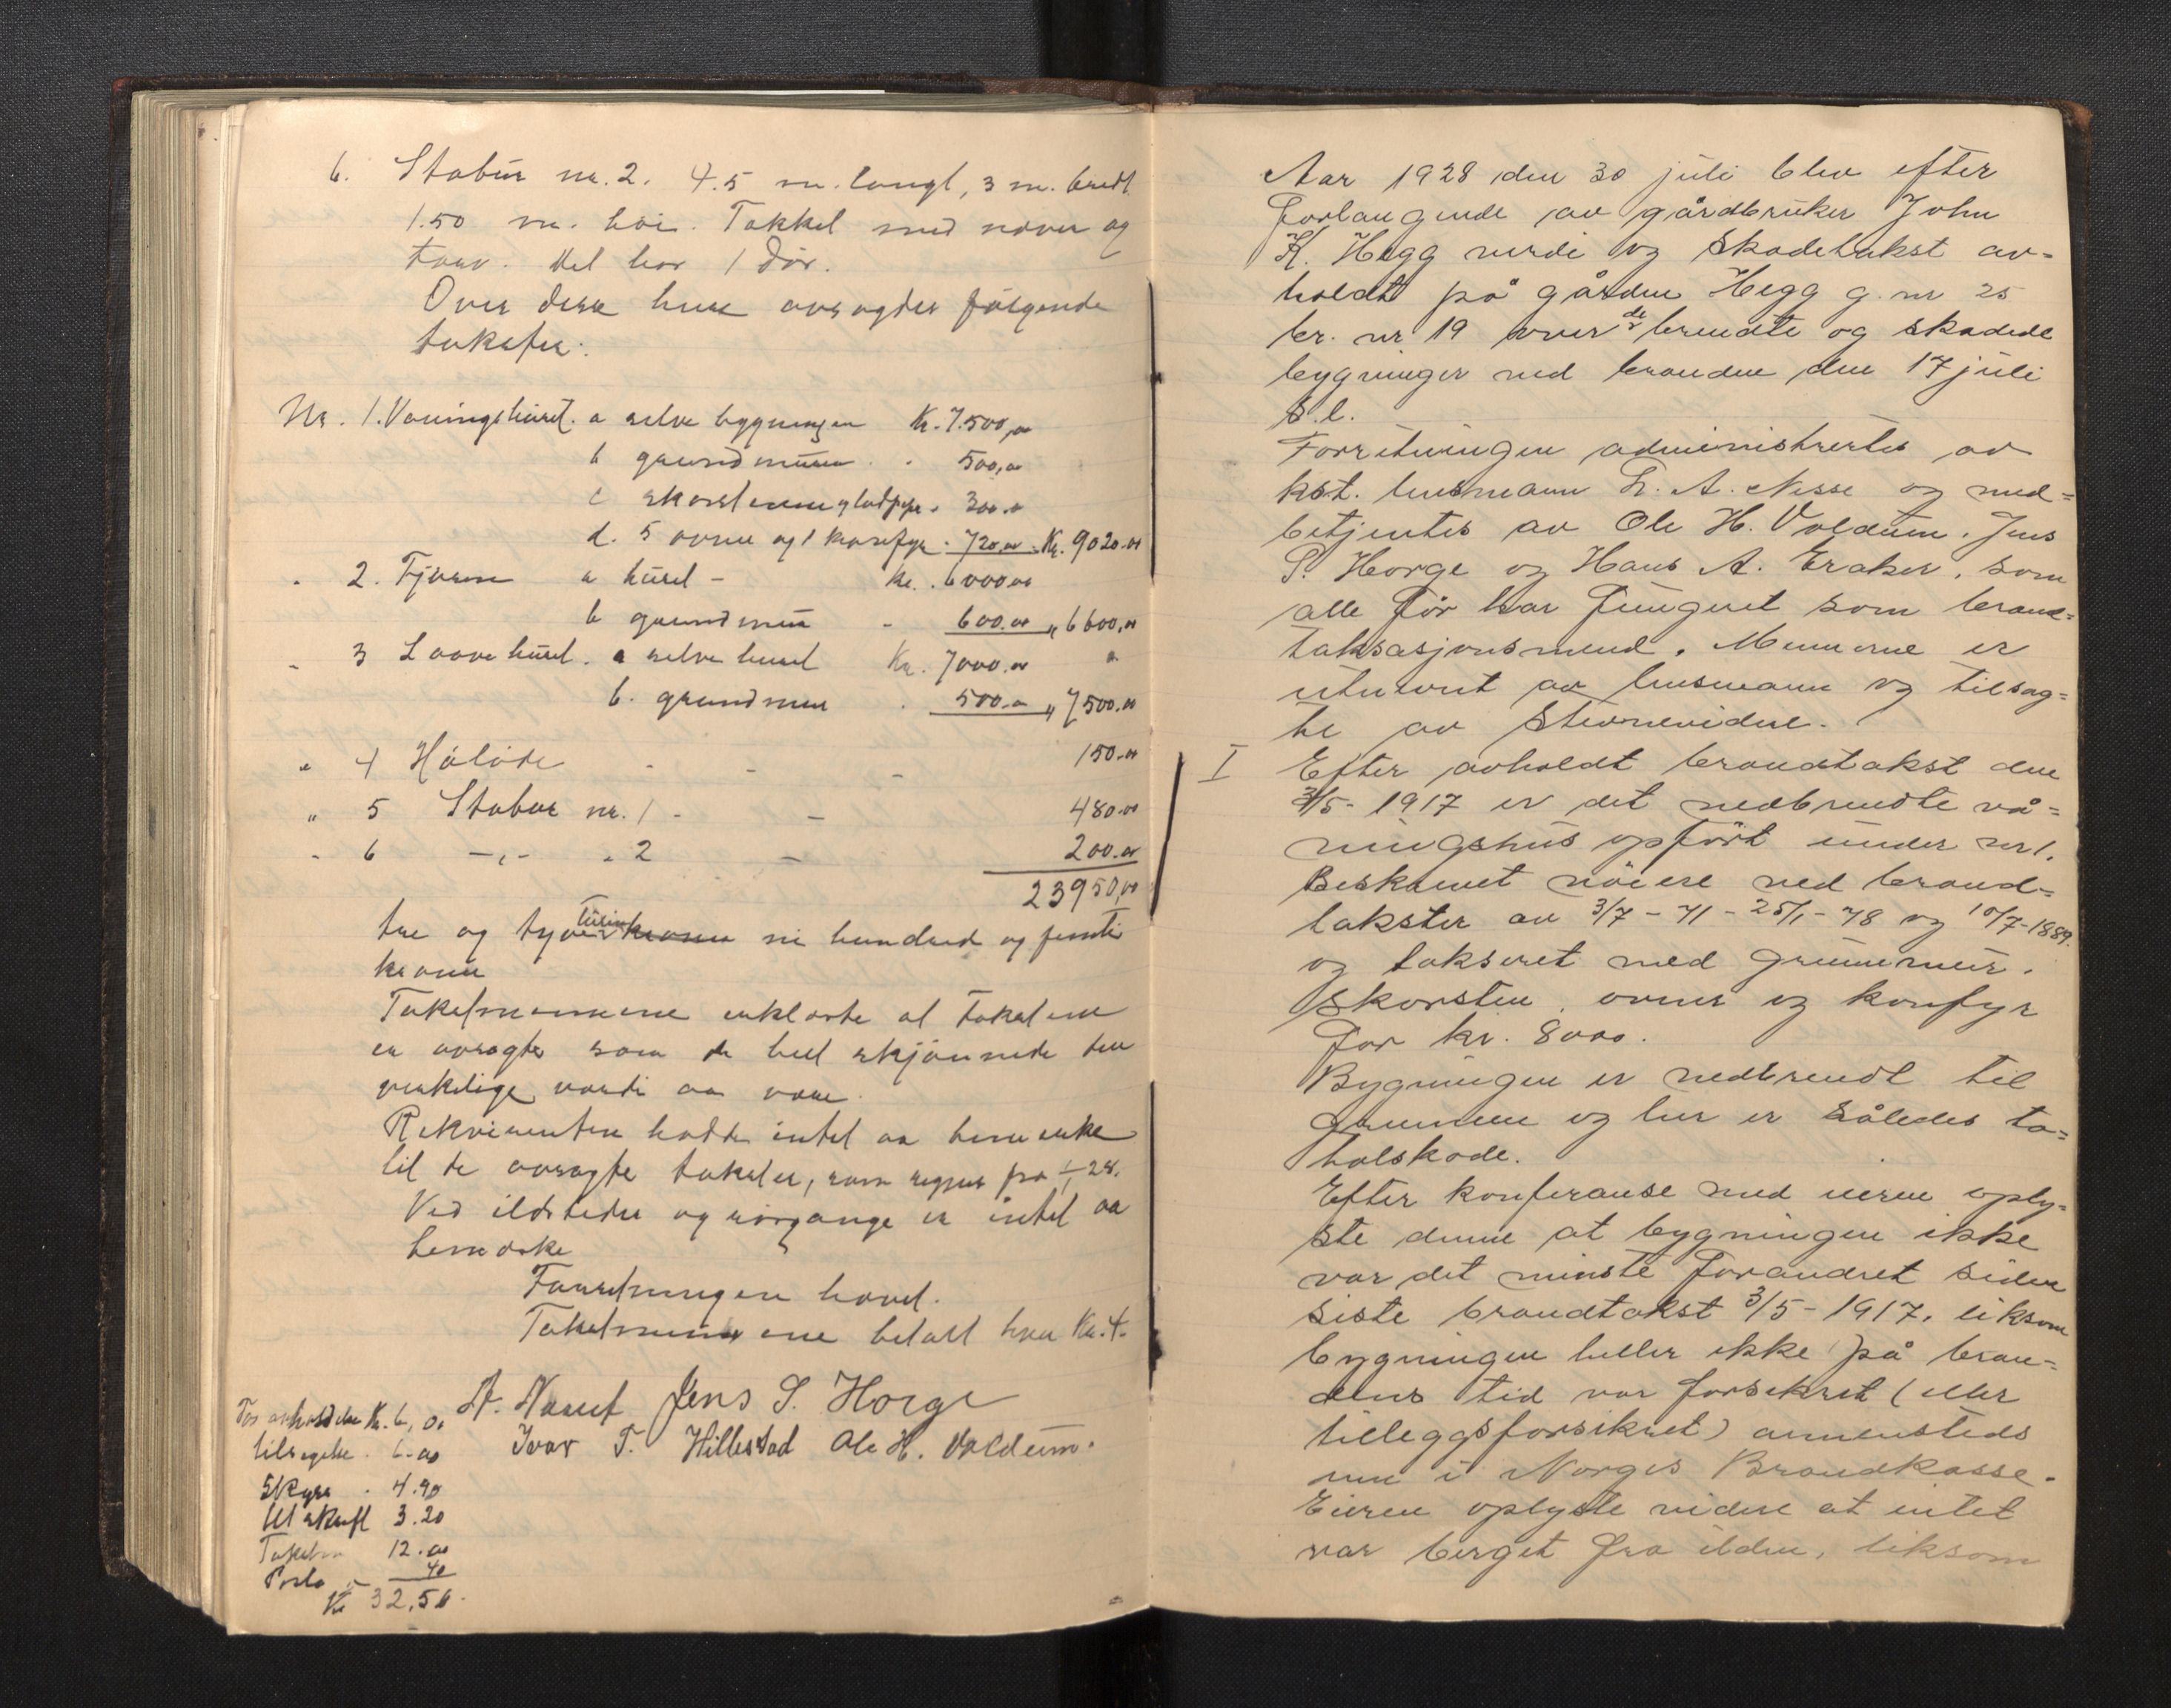 6. Stabur nr. 2. 4.5 m. langt, 3 m. bredt
1.50 m. høi. Tekket med never og
torv. Det har 1 dør.
Over disse huse avsagdes følgende
takster:
Nr. 1. Vaaningshuset. a selve bygningen Kr. 7.500,00
b grundmuren. " 500,00
c skorstenene 300.00
d. 5 ovner og 1 komfyr. 720.00 Kr. 9020.00
" 2. Fjøsen a huset - Kr. 6000.00
b grundmur - 600.00 " 6600,00
" 3 Loovehuset. a selve huset Kr. 7000.00
b. grundmur 500.00 " 7500.00
" 4 Høløde - - - 150.00
" 5 Stabur nr. 1 - - 480.00
" 6 -"- " 2 - 200.00
23950,00
tre og tyve tusin kroner ni hundred og femti
kroner
Takstmennene erklærte at takstene
er avsagte som de best skjønnede den
virkelige værdi aa være.
Rekvirenten hadde intet aa bemerke
til de avsagte takster, som regnes fra 1/1 28.
Ved ildsteder og rørgange er intet aa
bemerke
Forretningen hævet.
Takstmennene betalt hver Kr. 4.
A. Nesse Jens S. Horge
Ivar T. Hillestad Ole H. Voldum.
For avholdelse Kr. 6,00
tilsigelse . 6.00
Skyss . 4.90
Utskrift 3.20
Takstm 12.00
Porto 40
Kr 32.50.
Aar 1928 den 30 juli blev efter
Forlangende av gårdbruker John
K. Hegg verdi og skadetakst av=
holdt på gården Hegg g. nr 25
br. nr 19 over de brendte og skadede
bygninger ved branden den 17 juli
s.l.
Forretningen administrertes av
kst. lensmann A. Nesse og med=
betjentes av Ole H. Voldum. Jens
S. Horge og Hans A. Eraker, som
alle før har fungeret som brand=
taksasjonsmend. Mennene er
utnevnt av lensmann og tilsag=
te av stevnevidne.
I Efter avholdt brandtakst den
3/5- 1917 er det nedbrendte vå=
ningshus opført under nr 1.
Beskrevet nøiere ved brand=
takster av 3/7 - 71 - 25/1 - 78 og 10/7-1889.
og taksert med grunnmur.
skorsten, ovner og komfyr
for kr. 8000.
Bygningen er nedbrendt til
grunnen og her er således to=
talskade.
Efter konferanse med eieren oply=
ste denne at bygningen ikke
var det minste forandret siden
siste brandtakst 3/5 - 1917, liksom
bygningen heller ikke på bran=
dens tid var forsikret (eller
tilleggsforsikret) annensteds
enn i Norges Brandkasse.
Eieren oplyste videre at intet
var berget fra ilden, liksom